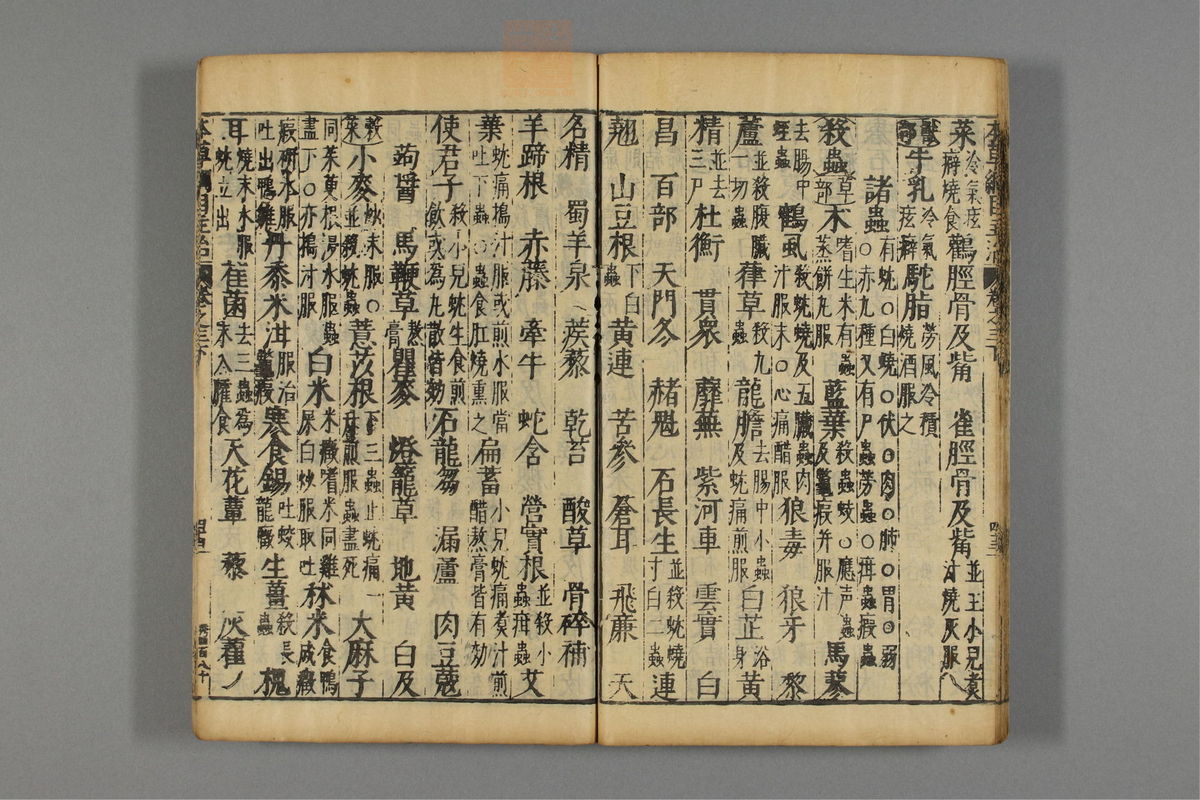 萊冷氣痃癖燒食鸛脛骨及觜 雀脛骨及觜並主小兒㾏汁燒灰服
牛乳冷氣痃癖駝脂勞風冷積燒酒服之
諸蟲有蚘○白蟯○伏○肉○肺○胃○弱○赤九種又有尸蟲勞蟲○疳蟲瘕蟲
殺蟲草部术嗜生米有蟲蒸餅丸服藍葉殺蟲蛟○應声蟲及鱉瘕并服汁馬蓼
去腸中蛭蟲鶴虱殺蚘蟯及五臟蟲肉汁服末○心痛醋服狼毒 狼牙 藜
蘆並殺腹臟一切蟲葎草殺九蟲龍膽去腸中小蟲及蚘痛煎服白芷浴身黃
精並去三尸杜衡 貫衆 蘼蕪 紫河車 雲實 白
昌 百部 天門冬 赭魁 石長生並殺蚘蟯寸白二蟲連
翹 山豆根下白蟲黃連 苦參 蒼耳 飛廉 天
名精 蜀羊泉 蒺藜 乾苔 酸草 骨碎補
羊蹄根 赤藤 牽牛 蛇含 營實根並殺小蟲疳蟲艾
葉蚘痛搗汁服或煎水服當吐下蟲○蟲食肛燒熏之扁蓄小兒蚘痛煑汁煎醋熬膏皆有効
使君子殺小兒蚘生食煎飲或為丸散皆効石龍芻 漏蘆 肉豆蔻
蒟醬 馬鞭草熬膏瞿麥 燈籠草 地黃 白及
穀菜小麥炒末服○並殺蚘蟲薏苡根下三蟲止蚘痛一升煎服蟲盡死大麻子
同茱萸根湯水服蟲盡下○亦搗汁服白米米癥嗜米同雞屎白炒服取吐秫米食鴨成癥
瘕研水服吐出鴨雛丹黍米泔服治鱉瘕寒食餳吐蛟龍癥生薑殺長蟲槐
耳燒末水服蚘立出雚菌去三蟲為末入臛食天花蕈 藜 灰藋